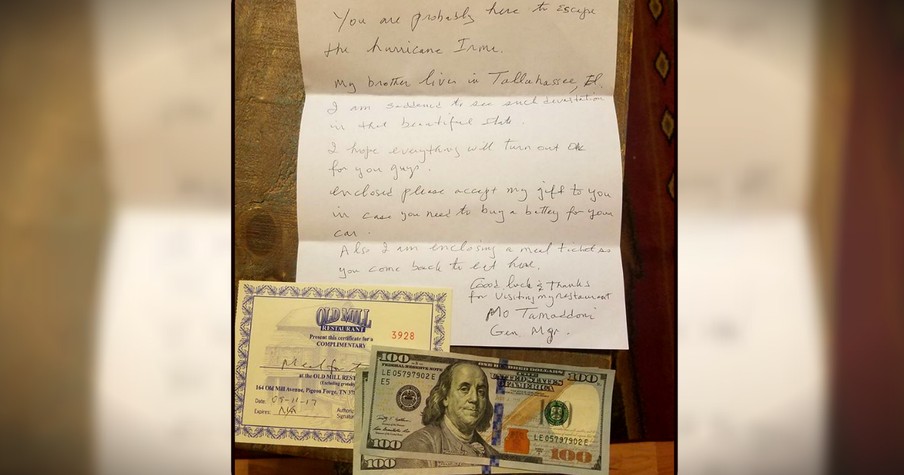 You are probably here to escape
the hurricane Irma.
My brother lives in Tallahassee, Fl.
I am saddened to see such devastation
in that beautiful state.
I hope everything will turn out ok
for you guys.
enclosed please accept my gift to you
in case you need to buy a battery for your
car.
Also I am enclosing a meal ticket so
you come back to eat here.
Good luck & thanks
for visiting my restaurant
Mo Tamaddoni
Gen Mgr.
OLD MILL
RESTAURANT
3928
Present this certificate for a
COMPLIMENTARY
Meal for
at the OLD MILL REST
(Excluding
164 Old Mill Avenue, Pigeon Forge, TN 37
Date: 09-11-17
Expires: N/A
Authoriz
Signatur
100
FEDERAL RESERVE NOTE
THE UNITED STATES
OF AMERICA
LE 05797902 E
E5
100
LE 05797902 E
100
100
100